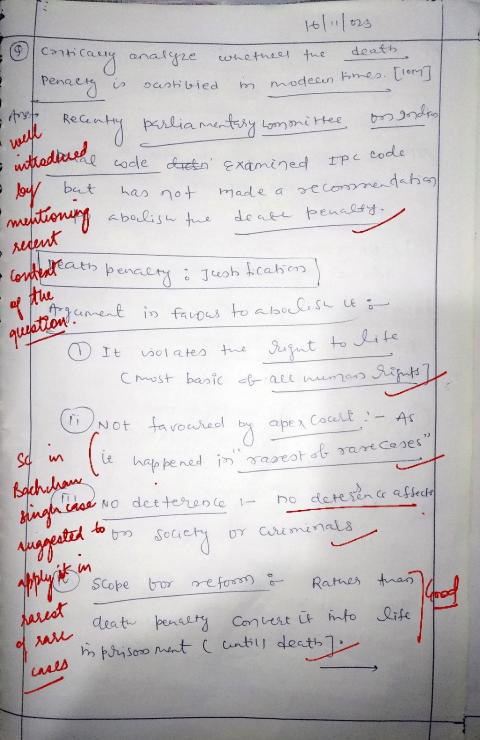 16/11/023
Q Critically analyze whether the death
Penalty is sastibied in modern times. [10M]
Ans:- Recently parliamentary committee on Indian
Penal code examined IPC code
but has not made a recommendation
abolish the death penalty.
well
introduced
by
mentioning
recent
context
of the
question.
Death penalty : Justification
Argument in favour to abolish it :-
(i) It violates the Right to life
(most basic of all human Rights]
(ii) NOT favoured by apex court :- As
it happened in "rarest of rare cases"
(iii) NO detterence :- no deterence affects
on society or criminals
Scope for reform :- Rather than
death penalty convert it into life
imprisonment (until death].
SC in
Bachchan
Singh case
suggested to
apply it in
rarest
of rare
cases
Good